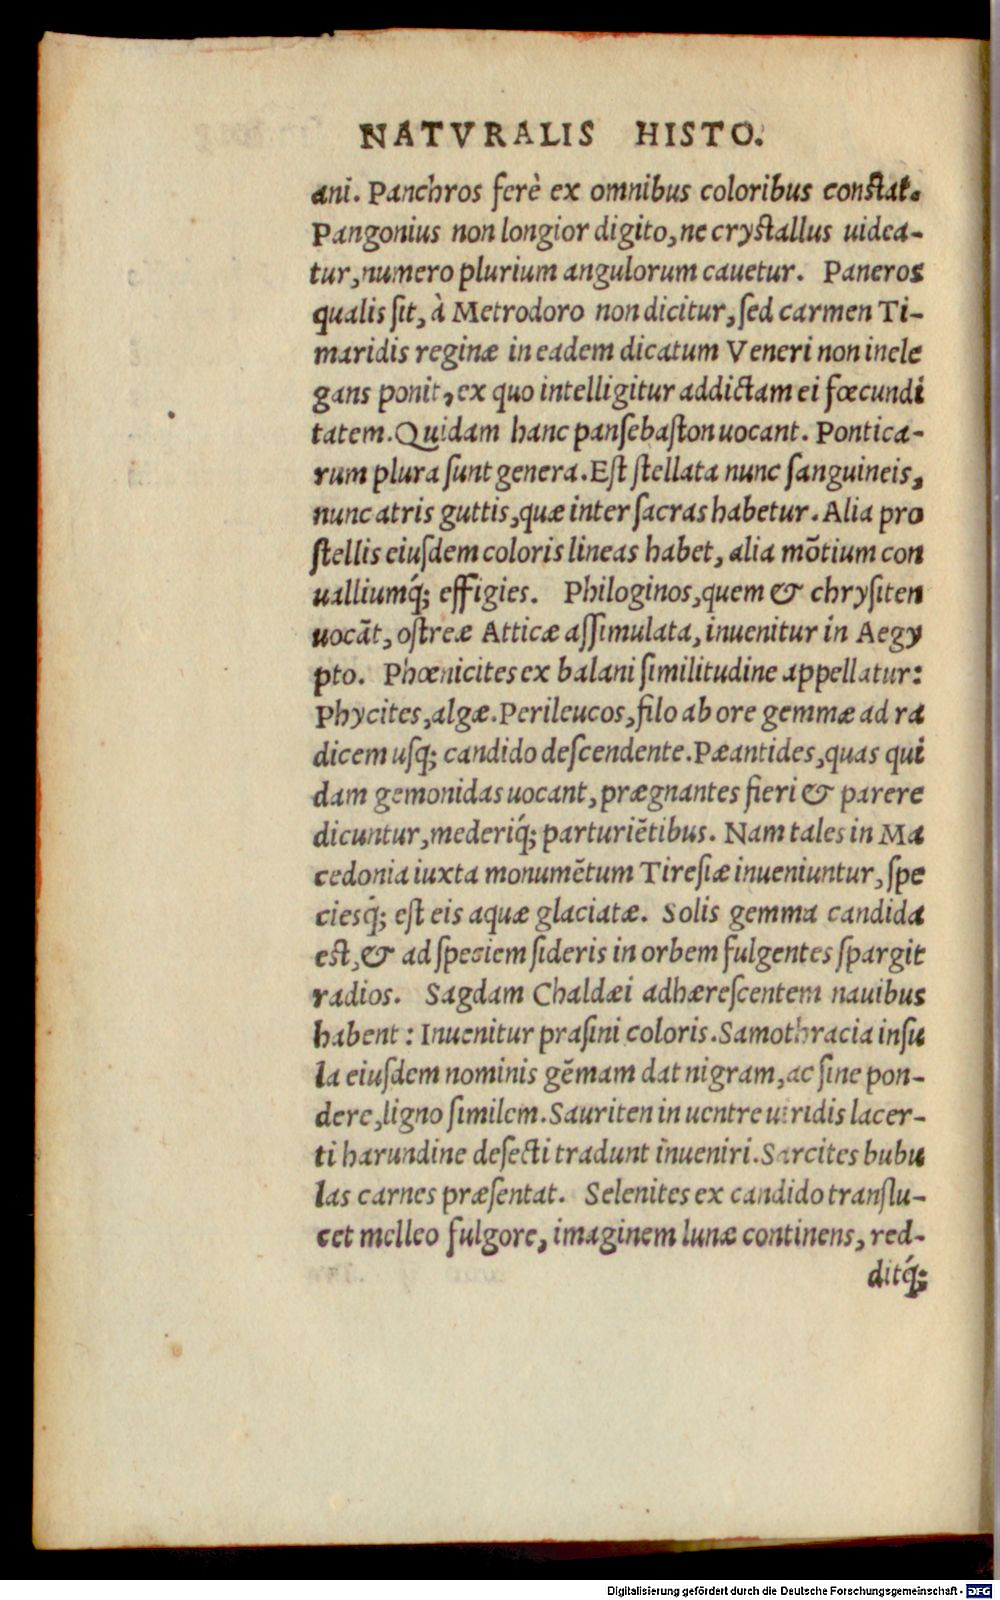 NATVRALIS HISTO.
ani. Panchros ferè ex omnibus coloribus constat.
Pangonius non longior digito, ne crystallus uidea-
tur, numero plurium angulorum cauetur. Paneros
qualis sit, à Metrodoro non dicitur, sed carmen Ti-
maridis reginæ in eadem dicatum Veneri non inele
gans ponit, ex quo intelligitur addictam ei fœcundi
tatem. Quidam hanc pansebaston uocant. Pontica-
rum plura sunt genera. Est stellata nunc sanguineis,
nunc atris guttis, quæ inter sacras habetur. Alia pro
stellis eiusdem coloris lineas habet, alia mõtium con
ualliumq́; effigies. Philoginos, quem & chrysiten
uocãt, ostreæ Atticæ assimulata, inuenitur in Aegy
pto. Phœnicites ex balani similitudine appellatur:
Phycites, algæ. Perileucos, filo ab ore gemmæ ad ra
dicem usq; candido descendente. Pæantides, quas qui
dam gemonidas uocant, prægnantes fieri & parere
dicuntur, mederiq́; parturiẽtibus. Nam tales in Ma
cedonia iuxta monumẽtum Tiresiæ inueniuntur, spe
ciesq́; est eis aquæ glaciatæ. Solis gemma candida
est, & ad speciem sideris in orbem fulgentes spargit
radios. Sagdam Chaldæi adhærescentem nauibus
habent : Inuenitur prasini coloris. Samothracia insu
la eiusdem nominis gẽmam dat nigram, ac sine pon-
dere, ligno similem. Sauriten in uentre uiridis lacer-
ti harundine desecti tradunt inueniri. Sarcites bubu
las carnes præsentat. Selenites ex candido translu-
cet melleo fulgore, imaginem lunæ continens, red-
ditq́;
Digitalisierung gefördert durch die Deutsche Forschungsgemeinschaft - DFG